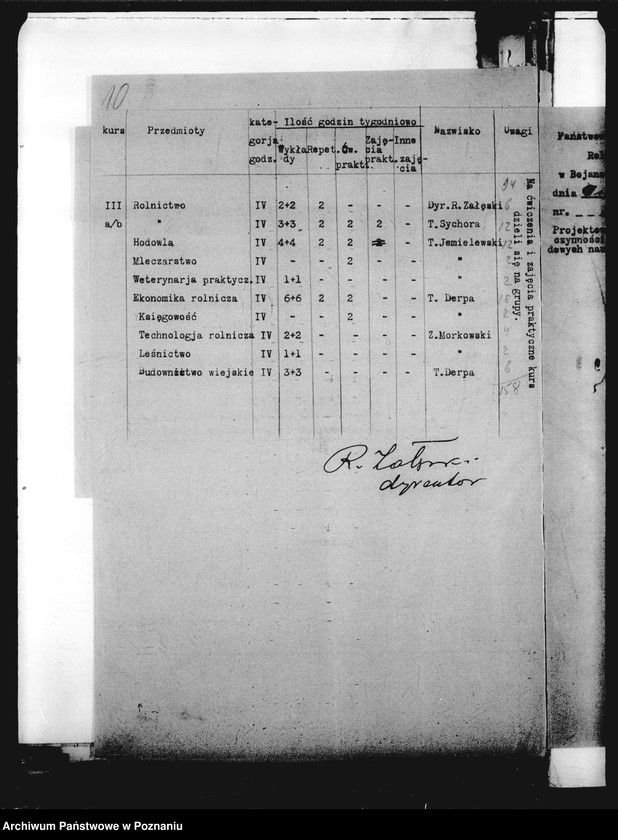 10
kurs Przedmioty kate-gorja godz. Ilość godzin tygodniowo Nazwisko Uwagi
Wykła-dy Repet. Ćw. prakt. Zaję-cia prakt. Inne zaję-cia
94
III Rolnictwo IV 2+2 2 - - - Dyr.R.Załęski 6
a/b " IV 3+3 2 2 2 - T.Sychora 12
Hodowla IV 4+4 2 2 - T.Jemielewski 12
Mleczarstwo IV - - 2 - - " 2
Weterynarja praktycz. IV 1+1 - - - - " 2
Ekonomika rolnicza IV 6+6 2 2 - - T. Derpa
Księgowość IV - - 2 - - " 2
Technologja rolnicza IV 2+2 - - - - Z.Morkowski 4
Leśnictwo IV 1+1 - - - - " 2
Budownictwo wiejskie IV 3+3 - - - - T.Derpa 6
158
Na ćwiczenia i zajęcia praktyczne kurs
dzieli się na grupy.
R. Załęski
dyrektor
w Bojan
dnia
nr.
czynności
dowych
Archiwum Państwowe w Poznaniu